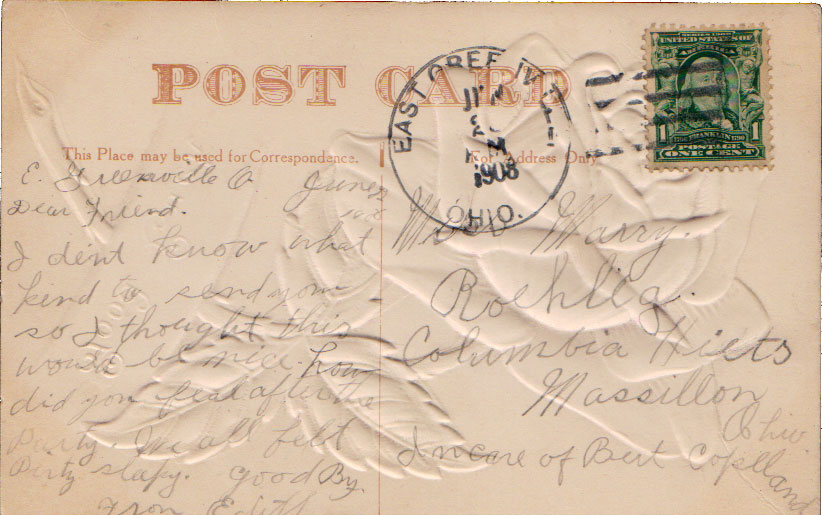 POST CARD
EAST GREENVILLE
1908
OHIO.
SERIES 1902
UNITED STATES OF
AMERICA
1 FRANKLIN 1
POSTAGE
ONE CENT
This Place may be used for Correspondence.
For Address Only
E. Greenville O June
Dear Friend.
I dont know what
kind to send you
so I thought this
would be nice. how
did you feal after the
Party. We all felt
Pirty slapy. good By.
From Edith
Miss Marry.
Roehlig.
Columbia Hiets
Massillon
Ohio
In care of Bert Coplland